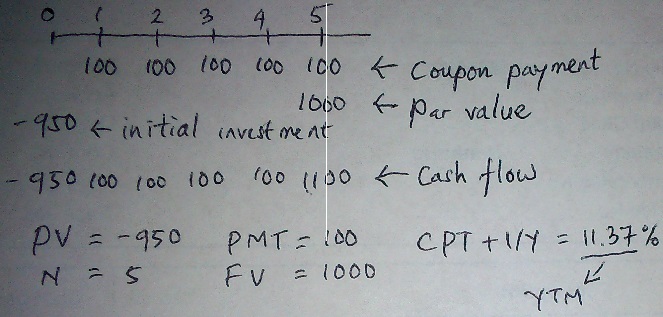 0 1 2 3 4 5
100 100 100 100 100 ← Coupon payment
1000 ← par value
-950 ← initial investment
-950 100 100 100 100 1100 ← Cash flow
PV = -950 PMT = 100 CPT + I/Y = 11.37%
N = 5 FV = 1000
YTM